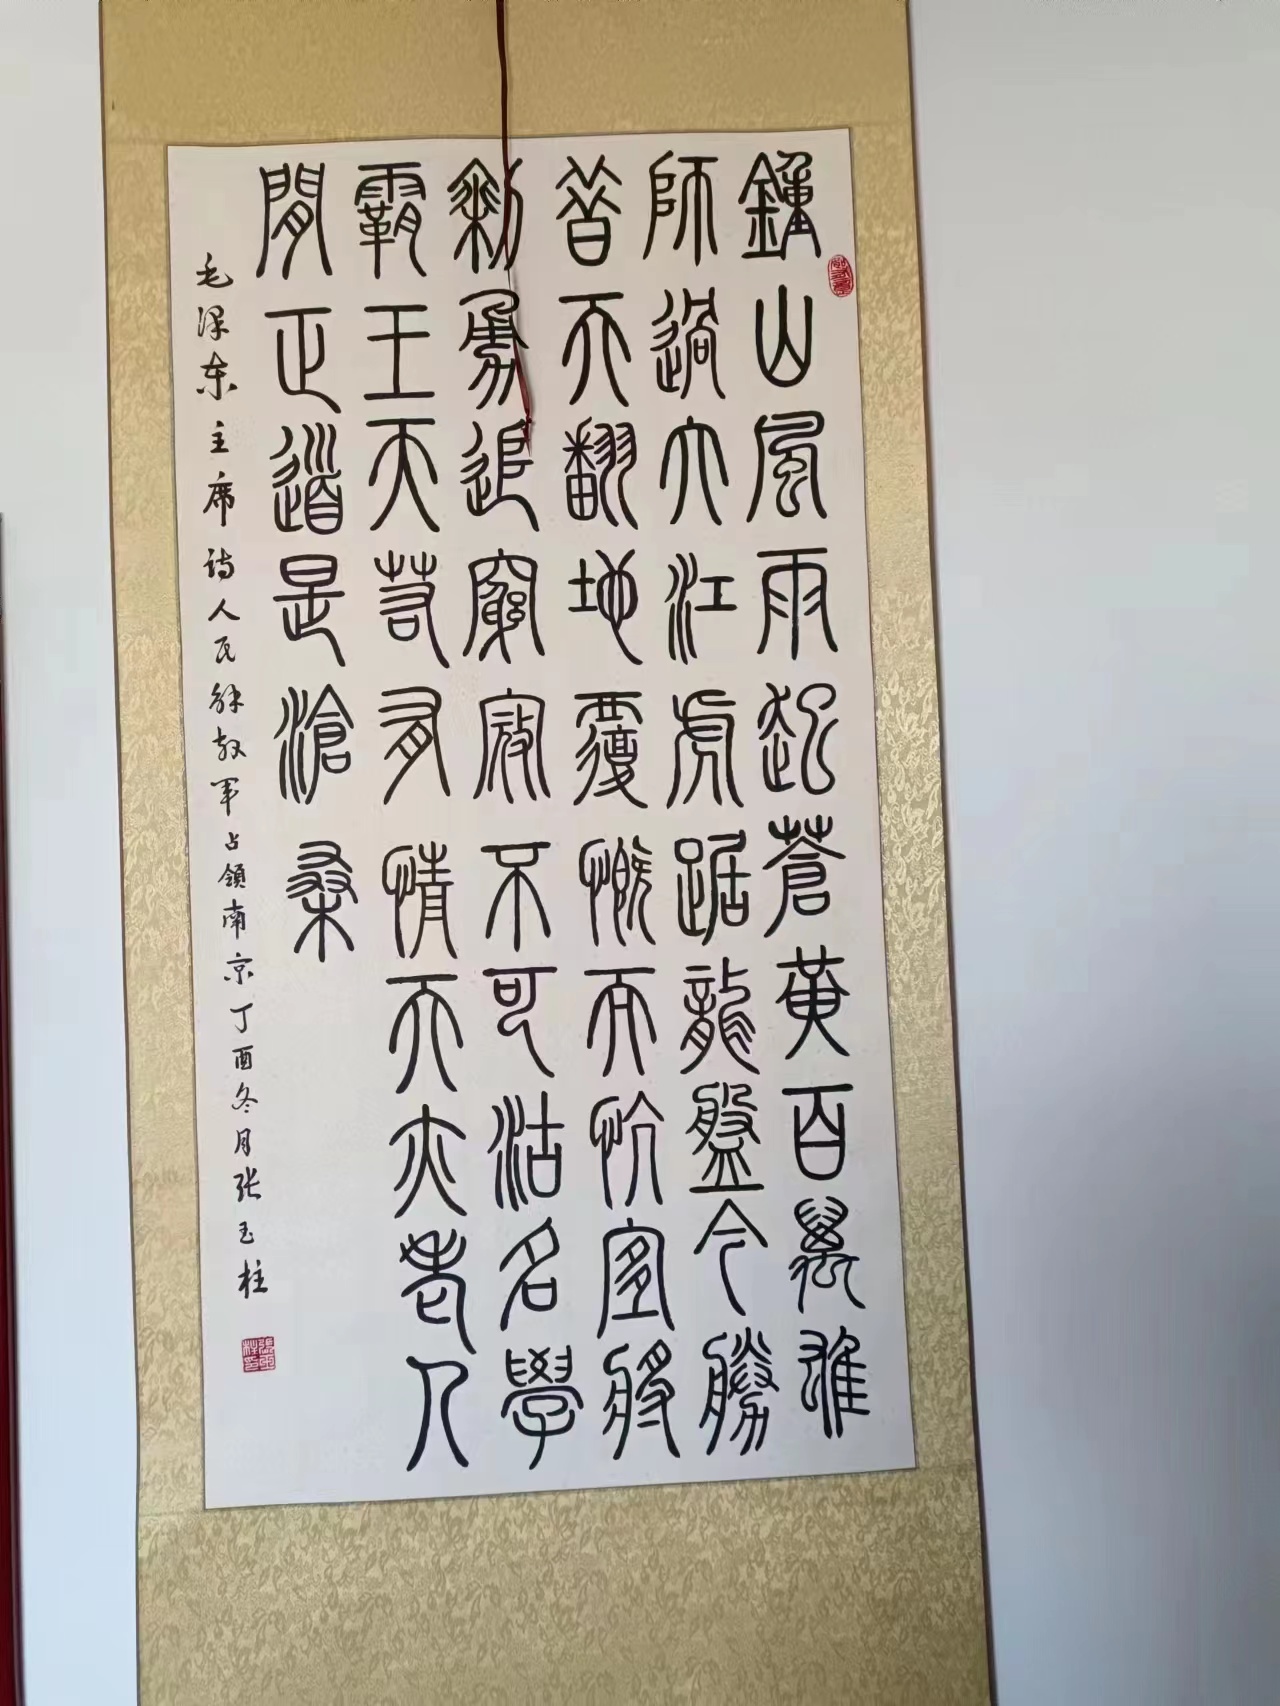 鍾山風雨起蒼黄百萬雄
師過大江虎踞龍盤今勝
昔天翻地覆慨而慷宜將
剩勇追窮寇不可沽名學
霸王天若有情天亦老人
閒正道是滄桑
毛泽东主席诗人民解放军占領南京丁酉冬月张玉柱
張玉柱印